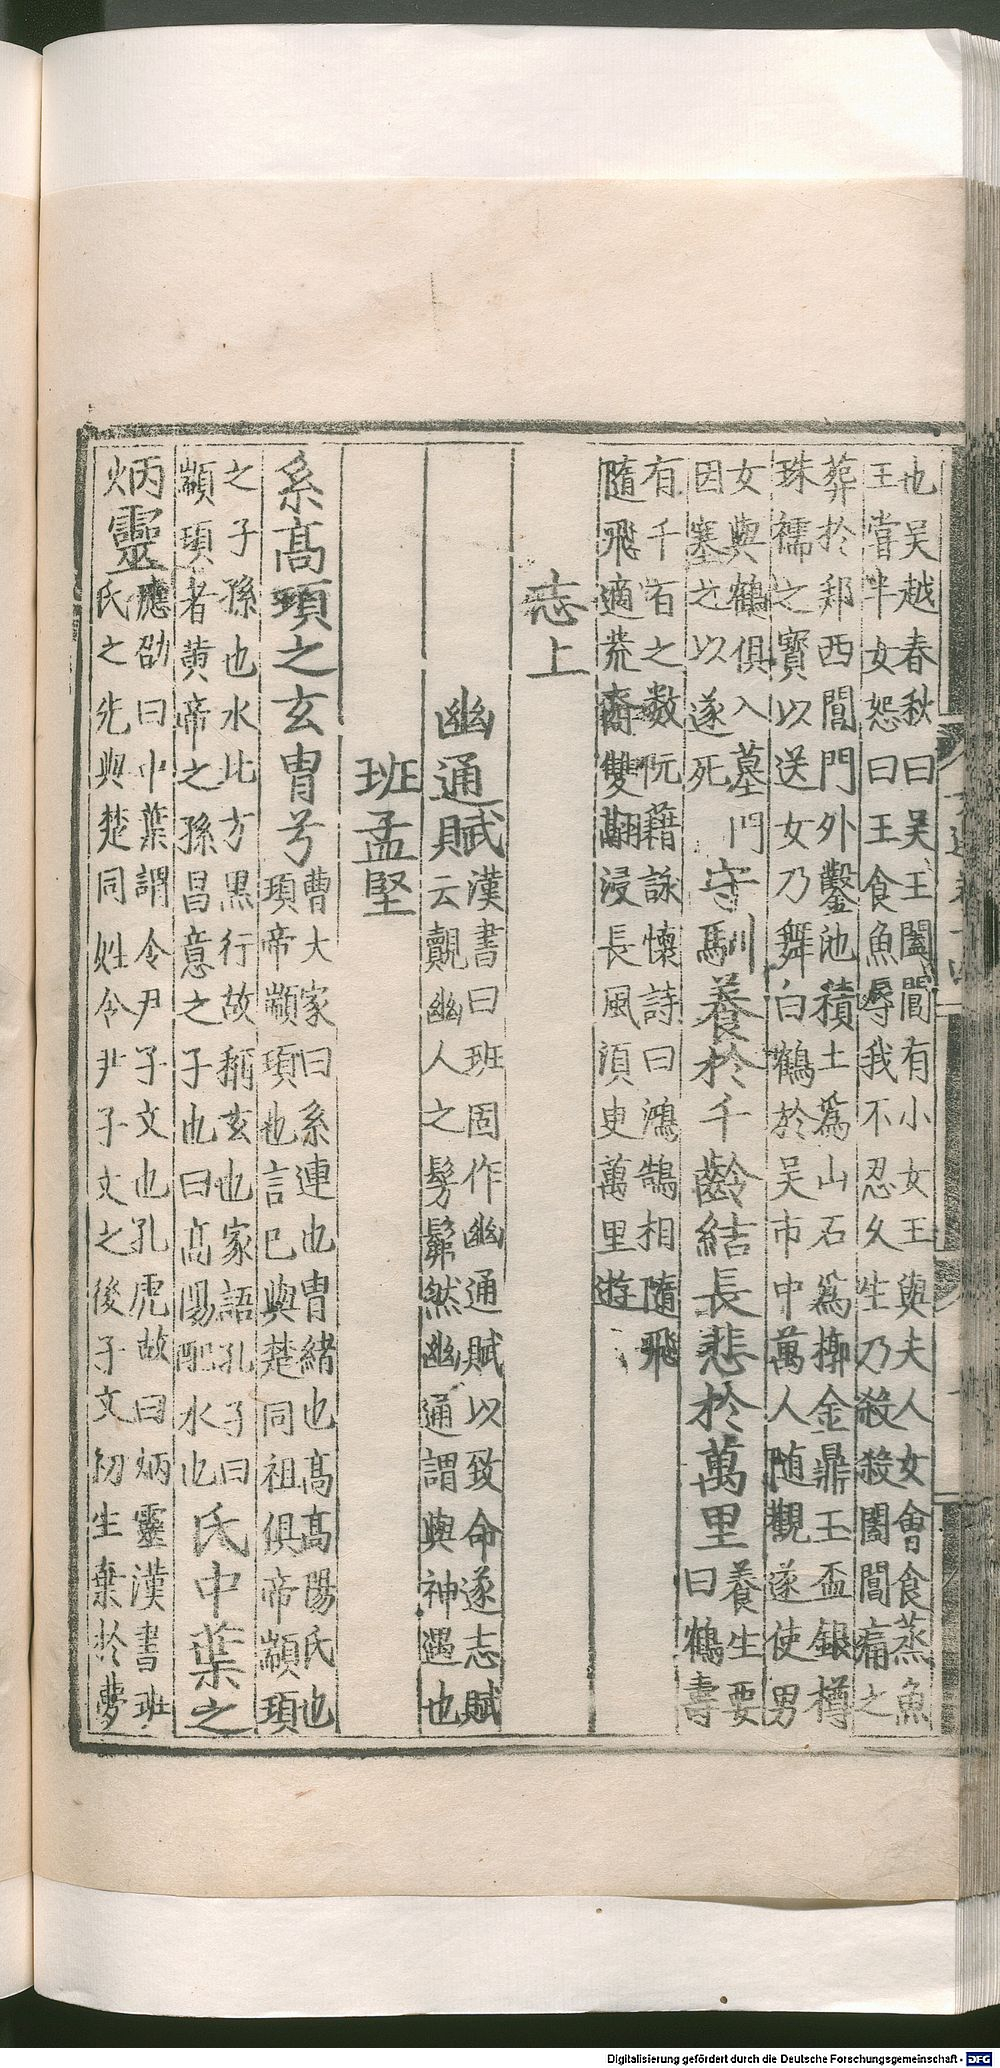 也吴越春秋曰吴王闔閭有小女王與夫人女會食蒸魚
王嘗半女怨曰王食魚辱我不忍久生乃殺殺闔閭痛之
葬於郑西閶門外鑿池積土為山石為槨金鼎玉盃銀樽
珠襦之寳以送女乃舞白鶴於吴市中萬人随觀遂使男
女與鶴俱入墓門
因塞之以遂死
守馴養於千齡結長悲於萬里
養生要
曰鶴壽
有千百之数阮藉詠懷詩曰鴻鵠相隨飛
隨飛適荒裔雙翮浸長風湏史萬里遊
志上
幽通賦
漢書曰班固作幽通賦以致命遂志賦
云觀幽人之髣髴然幽通謂與神遇也
班孟堅
系高頊之玄胄兮
曹大家曰系連也胄緒也高高陽氏也
頊帝顓頊也言己與楚同祖俱帝顓頊
之子孫也水北方黒行故稱玄也家語孔子曰
顓頊者黄帝之孫昌意之子也曰高陽配水也
氏中葉之
炳
靈
應劭曰中葉謂令尹子文也孔虎故曰炳靈漢書班
氏之先與楚同姓令尹子文之後子文初生棄於夢
Digitalisierung gefördert durch die Deutsche Forschungsgemeinschaft - DFG